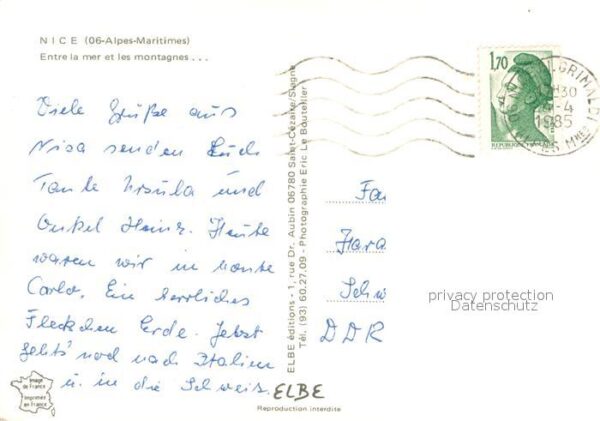 NICE (06-Alpes-Maritimes)
Entre la mer et les montagnes...
Viele Grüße aus
Nisa senden Euch
Tante Ursula und
Onkel Heinz. Heute
waren wir in Monte
Carlo. Ein herrliches
Fleckchen Erde. Jetzt
gehts noch nach Italien
u. in die Schweiz.
ELBE
Image
de France
Imprimée
en France
Reproduction interdite
ELBE éditions - 1, rue Dr. Aubin 06780 Saint-Cézaire/Siagne
Tél. (93) 60.27.09 - Photographie Eric Le Bouteiller
1,70
REPUBLIQUE FRANÇAISE
GRIMALDI
H30
-4
1985
ALPES Mmes
Fam
Hara
Schw
DDR
privacy protection
Datenschutz